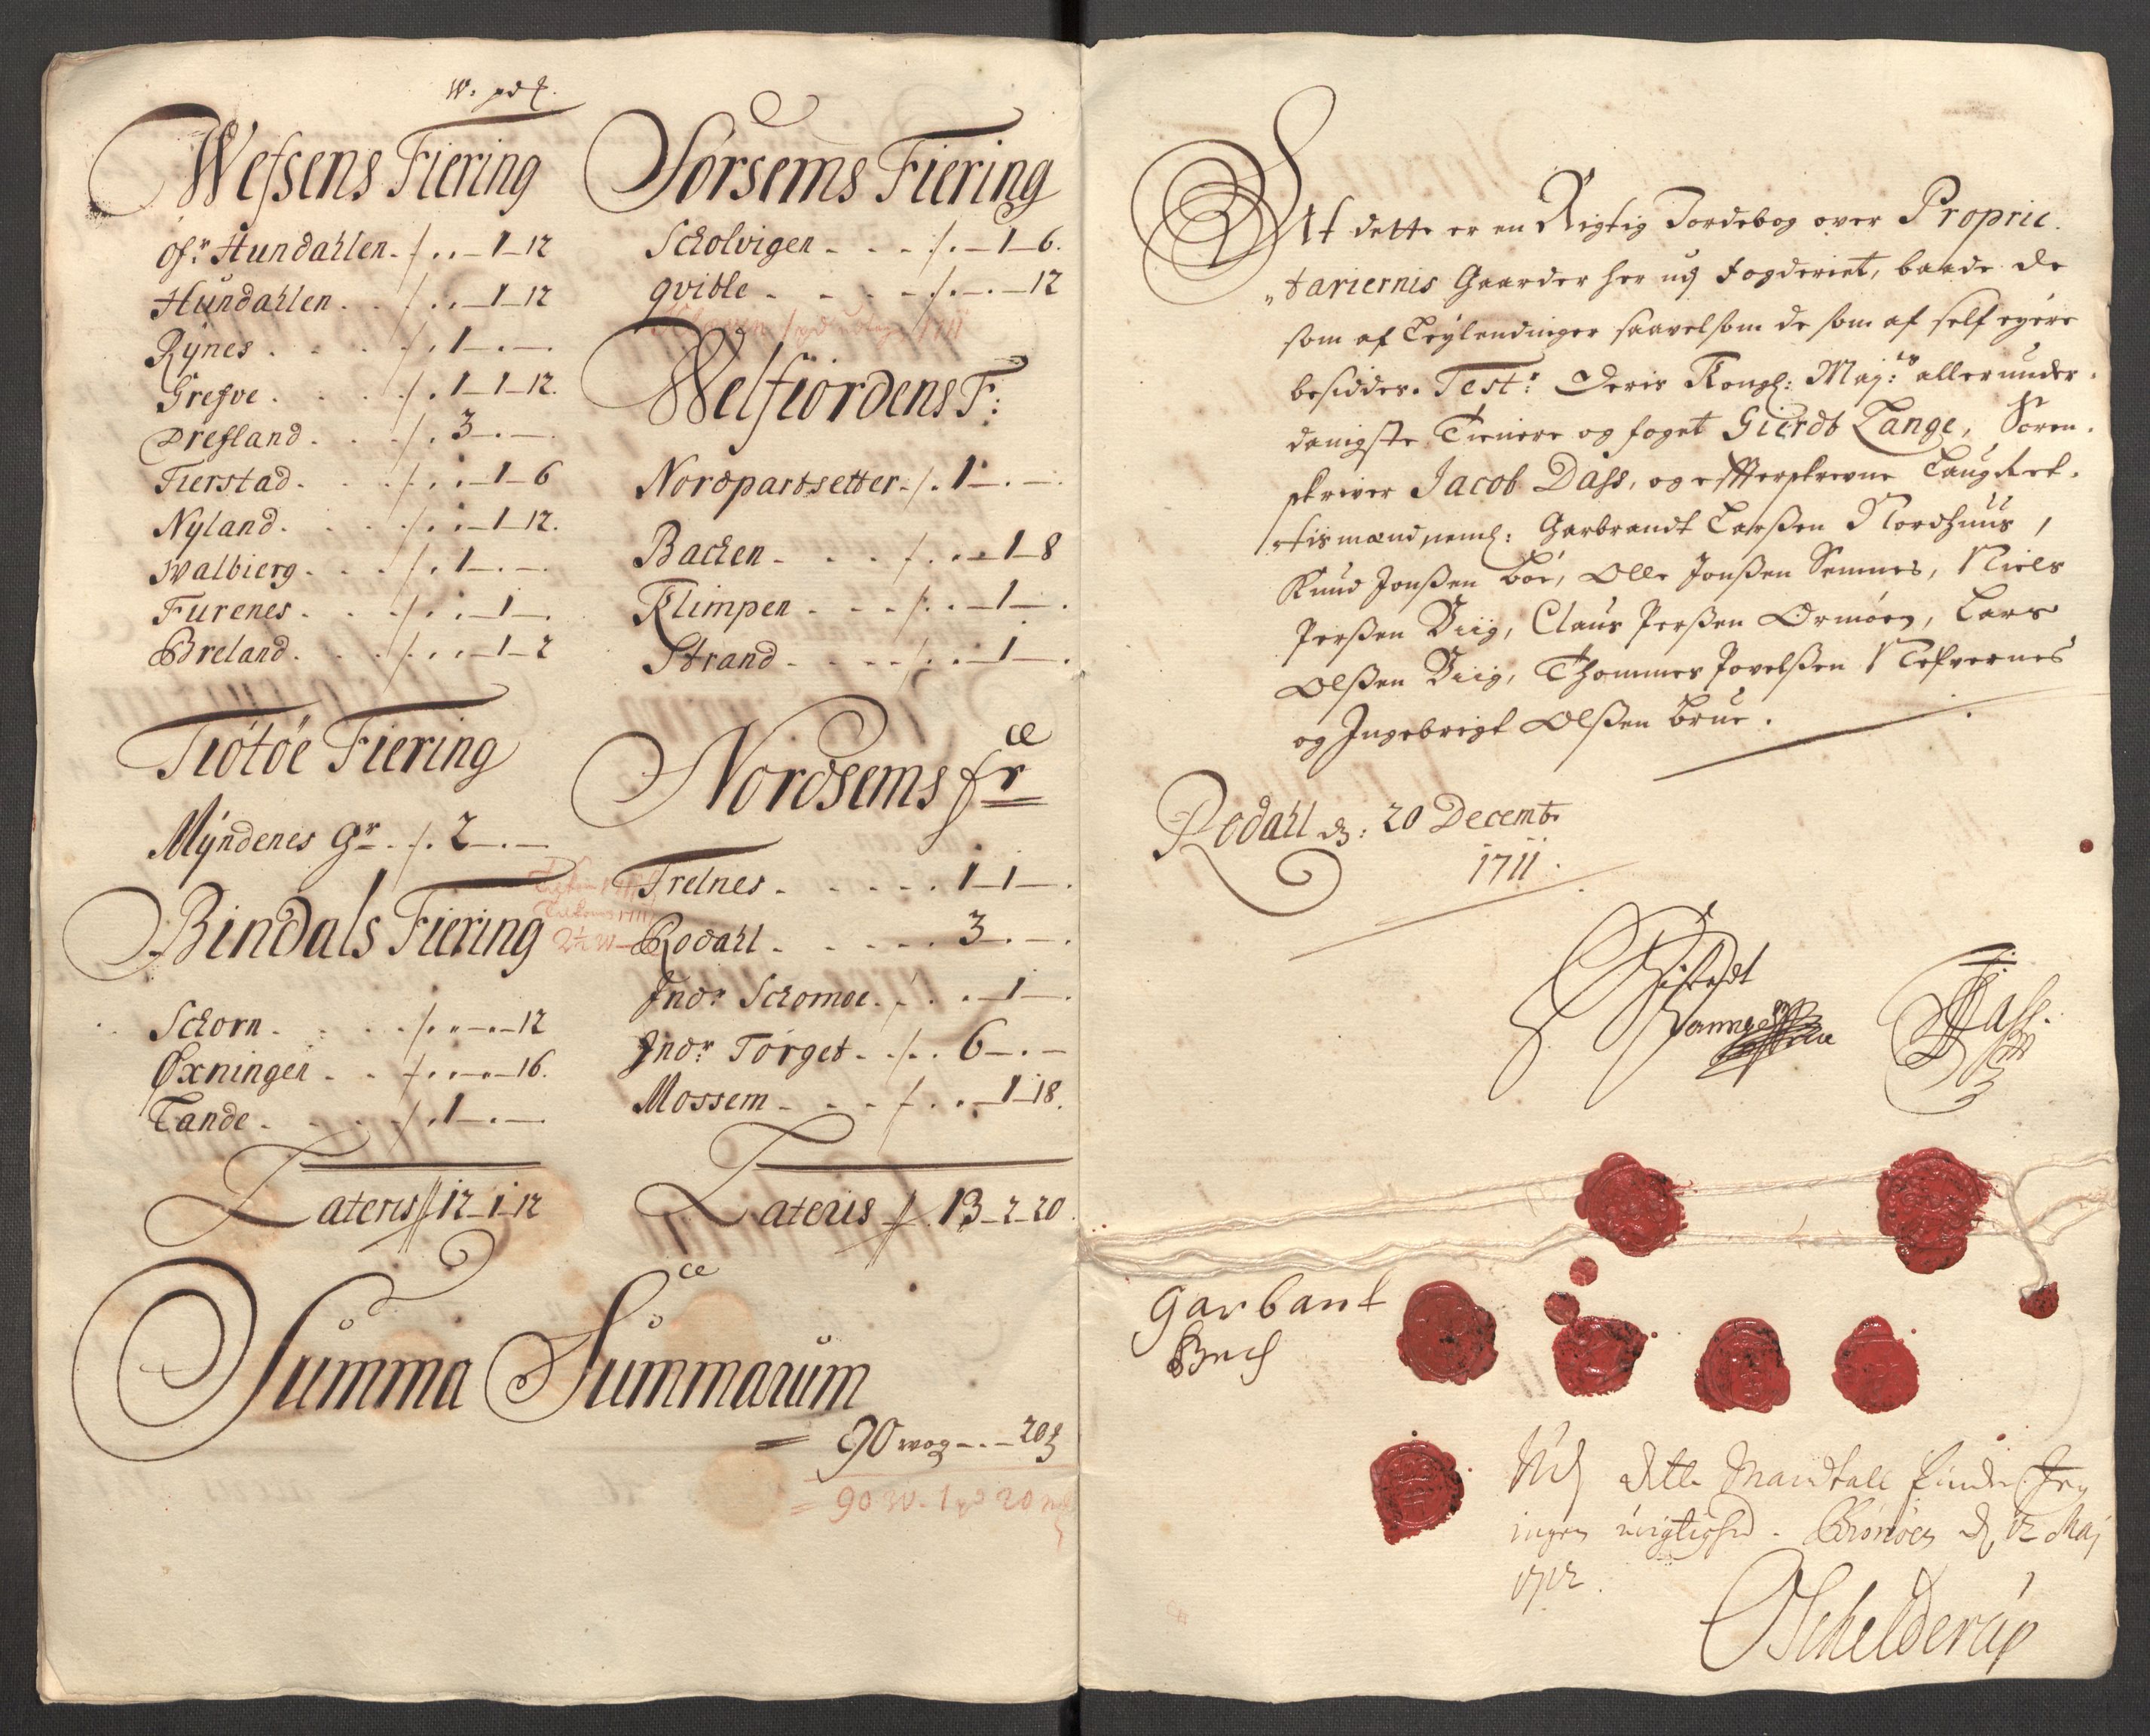 W: pd ℔.
Wefsens Fiering
Ofr: Hundahlen - /. . . - 1 - 12
Hundahlen . . /. . . - 1 - 12
Rÿnes . . . /. 1 - . -
Grefve . . . /. 1 - 1 - 12.
Drefland . . . /. 3 - . -
Tierstad . . . /. . . - 1 - 6
Nyland . . . /. . . - 1 - 12.
Walbierg - . . /. 1 - . -
Furenes . . . /. . . - 1 -
Breland . . . /. . . - 1 - 2
Tiötöe Fiering
Mÿndenes Gr - . /. 2 - . -
Bindals Fiering
Schorn - . . . /. . . - 12
Øxningen - . . /. . . - 16.
Tande - . . . /. 1 - . -
Lateris // 12 - 1 - 12
Sörsems Fiering
Scholvigen - - - /. - 1 - 6.
qvitle - - - - /. - . - 12
1711
Welfiordens F:
Nordpartsetter - /. 1 - . -
Backen - . . . /. . - 1 - 8
Klimpen - - - /. . . - 1 - .
Strand - - - - /. . - 1 - .
Nordsems fr
Trelnes - - - - - . 1 - 1 - .
Rodahl - - - - - . 3 - . - .
Indr Schomoe - /. . . - 1 - .
Indr Torget - . /. . 6 - . -
Mossem - - - /. . . - 1 - 18.
Lateris // 13 - 2 - 20.
Summa Summarum
= 90 wog - . - 20 ℔
= 90 W - 1 pd 20 mk
At dette er en Rigtig Jordebog over Proprie-
tariernis Gaarder her udj Fogderiet, baade de
som af Leylendinger saavelsom de som af self eyere
besiddes. Test: Deris Kongl: Maj:ts allerunder-
danigste Tienere og foget Gierdt Lange, Soren-
skriver Jacob Dass, og effterskrevne Laugret-
tismænd neml: Garbrandt Larßen Nordhuus,
Knud Jonßen Böe, Olle Jonßen Semnes, Niels
Perßen Viig, Claus Perßen Ormöen, Lars
Olßen Viig, Thommes Povelßen Nefvernes
og Ingebrigt Olßen Brue.
Rodahl d: 20 Decemb:
1711.
Dass.
Garbant
Ved dette Mandtall finder Jeg
ingen urigtighed. Brönöen d 12 Maj
1712.
Schelderup